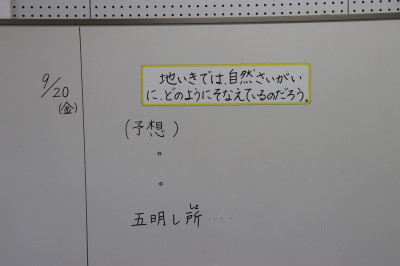 9/20
(金)
地いきでは、自然さいがい
に、どのようにそなえているのだろう。
(予想)
。
。
五明し所‥‥
しょ